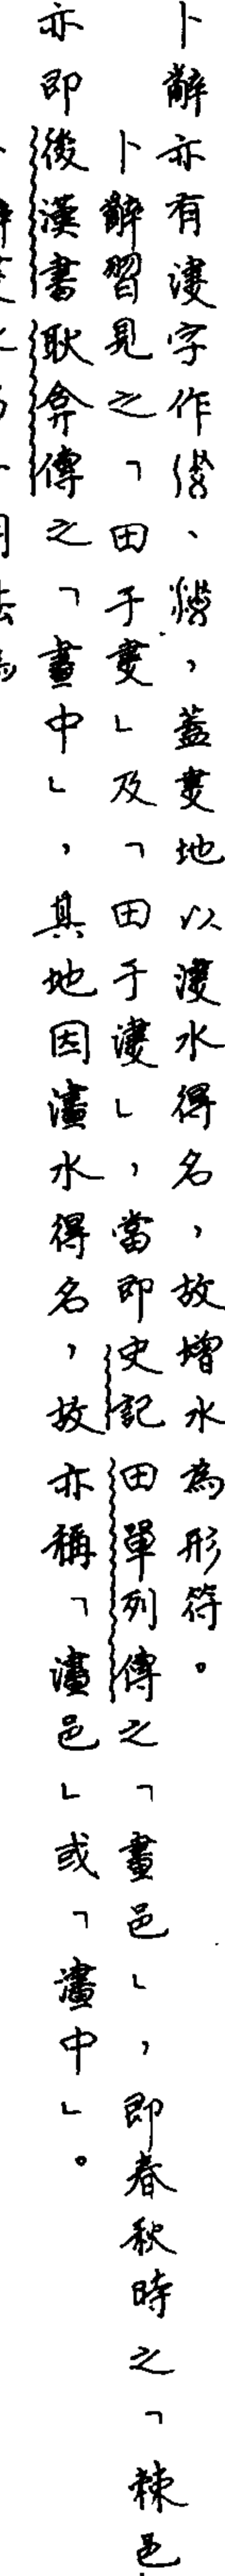 卜辭亦有字作、,蓋地以水得名,故增水為形符。
卜辭習見之「田于」及「田于」,當即史記田單列傳之「畫邑」,即春秋時之「棘邑
亦即後漢書耿弇傳之「畫中」,其地因澅水得名,故亦稱「澅邑」或「澅中」。